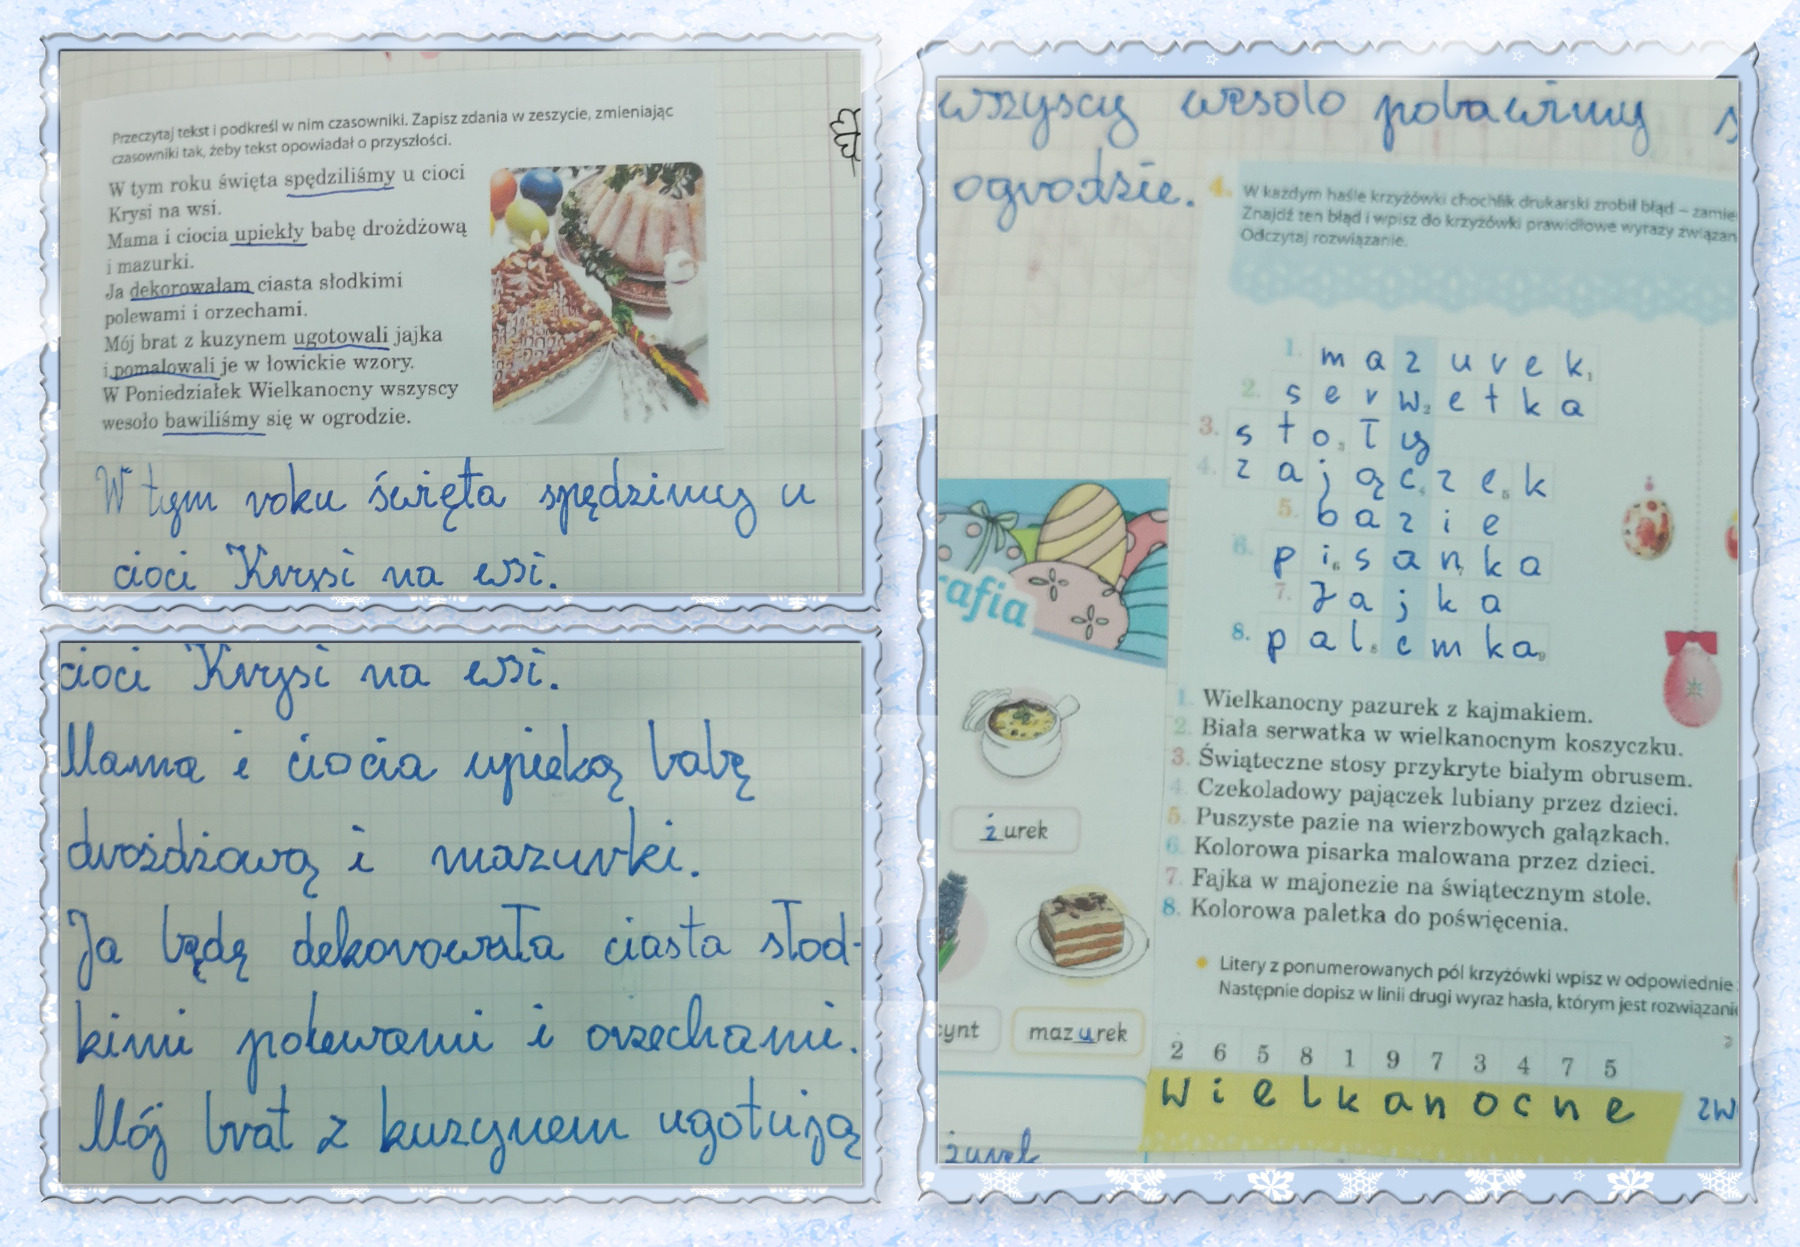 Przeczytaj tekst i podkreśl w nim czasowniki. Zapisz zdania w zeszycie, zmieniając
czasowniki tak, żeby tekst opowiadał o przyszłości.
W tym roku święta spędziliśmy u cioci
Krysi na wsi.
Mama i ciocia upiekły babę drożdżową
i mazurki.
Ja dekorowałam ciasta słodkimi
polewami i orzechami.
Mój brat z kuzynem ugotowali jajka
i pomalowali je w łowickie wzory.
W Poniedziałek Wielkanocny wszyscy
wesoło bawiliśmy się w ogrodzie.
W tym roku święta spędzimy u
cioci Krysi na wsi.
cioci Krysi na wsi.
Mama i ciocia upieką babę
drożdżową i mazurki.
Ja będę dekorowała ciasta słod-
kimi polewami i orzechami.
Mój brat z kuzynem ugotują
wszyscy wesoło pobawimy s
ogrodzie.
4. W każdym haśle krzyżówki chochlik drukarski zrobił błąd – zamie
Znajdź ten błąd i wpisz do krzyżówki prawidłowe wyrazy związan
Odczytaj rozwiązanie.
1. m a z u r e k 1
2. s e r w 2 e t k a
3. s t o 3 ł y
4. z a j ą c 4 z e 5 k
5. b a z i e
6. p i 6 s a n 7 k a
7. J a j k a
8. p a l 8 e m k a 9
rafia
żurek
ynt
mazurek
żurek
1. Wielkanocny pazurek z kajmakiem.
2. Biała serwatka w wielkanocnym koszyczku.
3. Świąteczne stosy przykryte białym obrusem.
4. Czekoladowy pajączek lubiany przez dzieci.
5. Puszyste pazie na wierzbowych gałązkach.
6. Kolorowa pisarka malowana przez dzieci.
7. Fajka w majonezie na świątecznym stole.
8. Kolorowa paletka do poświęcenia.
Litery z ponumerowanych pól krzyżówki wpisz w odpowiednie
Następnie dopisz w linii drugi wyraz hasła, którym jest rozwiązani
2 6 5 8 1 9 7 3 4 7 5
W i e l k a n o c n e zw